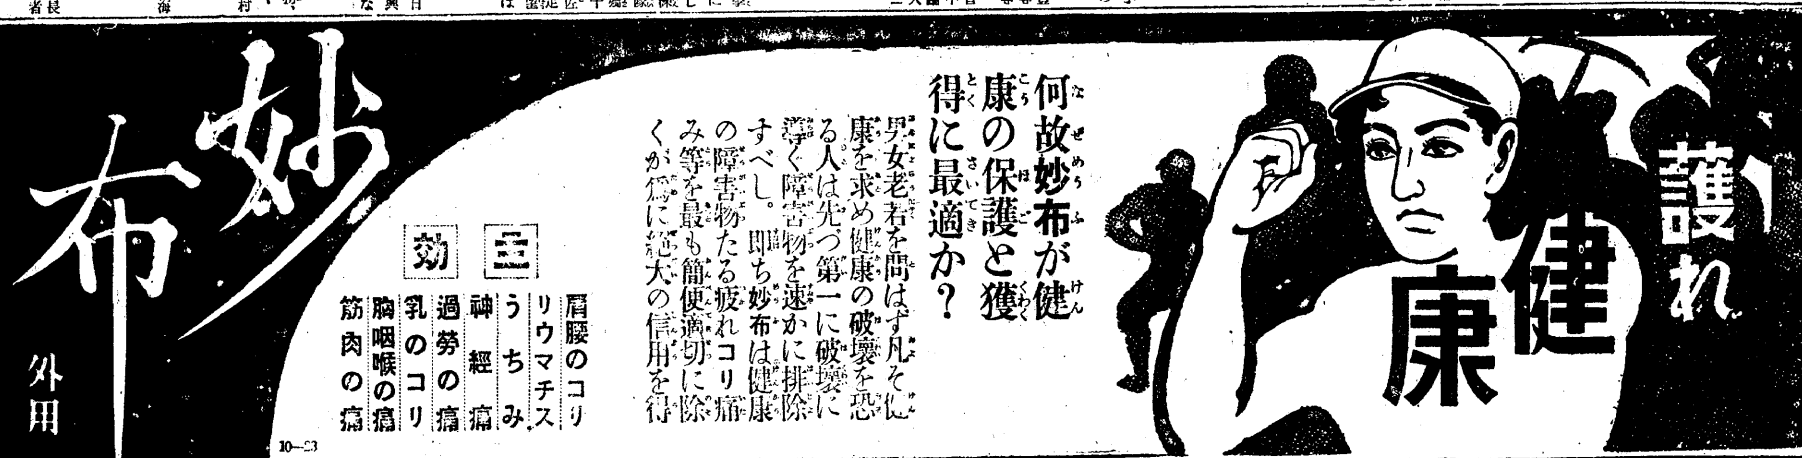 護れ
健康
何故妙布が健
康の保護と獲
得に最適か?
男女老若を問はず凡そ健
康を求め健康の破壊を恐
る人は先づ第一に破壊に
導く障害物を速かに排除
すべし。即ち妙布は健康
の障害物たる疲れコリ痛
み等を最も簡便適切に除
くが為に絶大の信用を得
主効
肩腰のコリ
リウマチス
うちみ
神經痛
過勞の痛
乳のコリ
胸咽喉の痛
筋肉の痛
妙布
外用
10—23